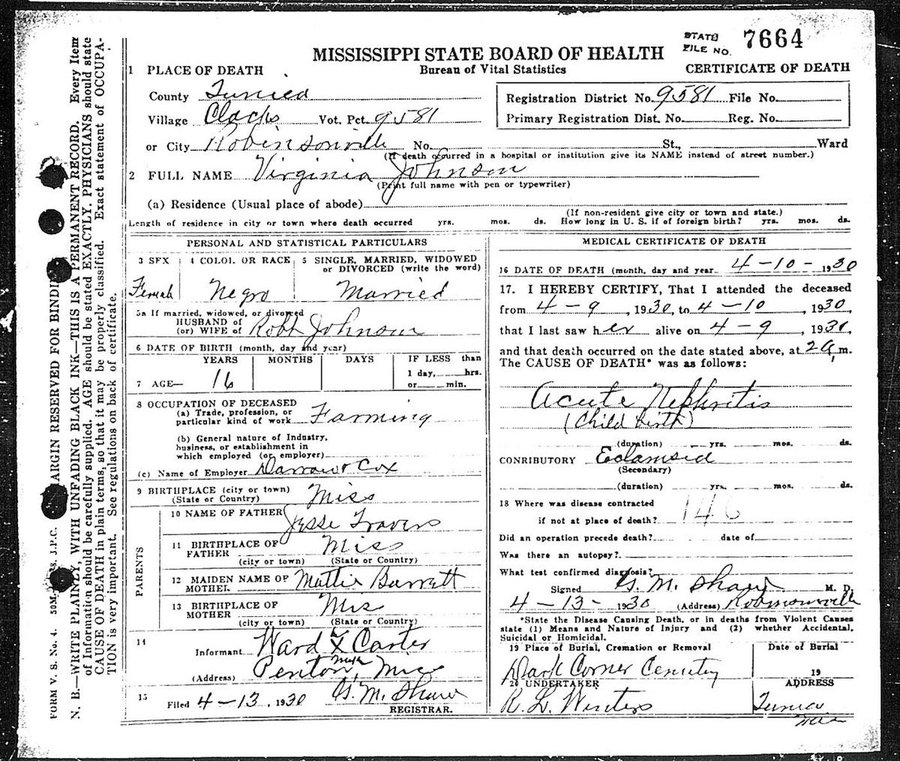 STATE FILE NO. 7664
MISSISSIPPI STATE BOARD OF HEALTH
Bureau of Vital Statistics
CERTIFICATE OF DEATH
1 PLACE OF DEATH
County Tunica
Village Clacks Vot. Pct. 9581
or City Robinsonville No. St., Ward
(If death occurred in a hospital or institution give its NAME instead of street number.)
Registration District No. 9581 File No.
Primary Registration Dist. No. Reg. No.
2 FULL NAME Virginia Johnson
(Print full name with pen or typewriter)
(a) Residence (Usual place of abode)
(If non-resident give city or town and state.)
Length of residence in city or town where death occurred yrs. mos. ds. How long in U. S. if of foreign birth? yrs. mos. ds.
PERSONAL AND STATISTICAL PARTICULARS
3 SEX 4 COLOR OR RACE 5 SINGLE, MARRIED, WIDOWED
or DIVORCED (write the word)
Female Negro Married
5a If married, widowed, or divorced
HUSBAND of
(or) WIFE of Robt Johnson
6 DATE OF BIRTH (month, day and year)
YEARS MONTHS DAYS IF LESS than
1 day, hrs.
7 AGE— 16 or min.
8 OCCUPATION OF DECEASED
(a) Trade, profession, or
particular kind of work Farming
(b) General nature of Industry,
business, or establishment in
which employed (or employer)
(c) Name of Employer Darrow & Cox
9 BIRTHPLACE (city or town)
(State or Country) Miss
PARENTS
10 NAME OF FATHER Jesse Travis
11 BIRTHPLACE OF
FATHER Miss
(city or town) (State or Country)
12 MAIDEN NAME OF
MOTHER Mattie Barrett
13 BIRTHPLACE OF
MOTHER Mis
(city or town) (State or Country)
14
Informant Ward X Carter
(Address) Penton, Miss
15
Filed 4-13, 1930 G. M. Shaw
REGISTRAR.
MEDICAL CERTIFICATE OF DEATH
16 DATE OF DEATH (month, day and year 4-10-1930
17. I HEREBY CERTIFY, That I attended the deceased
from 4-9, 1930, to 4-10, 1930,
that I last saw her alive on 4-9, 1930,
and that death occurred on the date stated above, at 2 a, m.
The CAUSE OF DEATH* was as follows:
Acute Nephritis
(Child birth)
(duration) yrs. mos. ds.
CONRIBUTORY Eclamsia
(Secondary)
(duration) yrs. mos. ds.
18 Where was disease contracted
if not at place of death? 146
Did an operation precede death? date of
Was there an autopsy?
What test confirmed diagnosis?
Signed G. M. Shaw M. D.
4-13-1930 (Address) Robinsonville
*State the Disease Causing Death, or in deaths from Violent Causes
state (1) Means and Nature of Injury and (2) whether Accidental,
Suicidal or Homicidal.
19 Place of Burial, Cremation or Removal Date of Burial
Dark Corner Cemetry 19
20 UNDERTAKER ADDRESS
R. L. Winters Tunica
Miss
MARGIN RESERVED FOR BINDING
FORM V. S. No. 4. 50M J.P.C.
N. B.—WRITE PLAINLY, WITH UNFADING BLACK INK—THIS IS A PERMANENT RECORD. Every Item
of Information should be carefully supplied. AGE should be stated EXACTLY. PHYSICIANS should state
CAUSE OF DEATH in plain terms, so that it may be properly classified. Exact statement of OCCUPA-
TION is very important. See regulations on back of certificate.